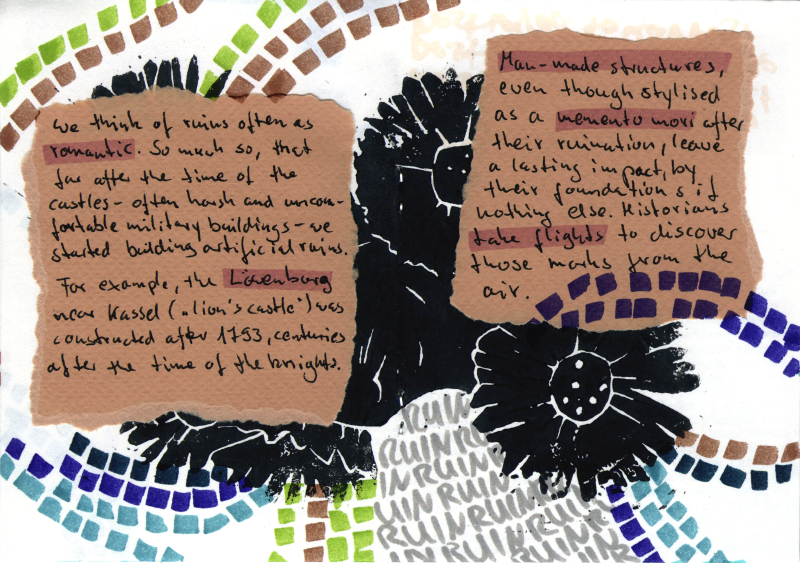 We think of ruins often as
romantic. So much so, that
far after the time of the
castles – often harsh and uncom-
fortable military buildings – we
started building artificial ruins.
For example, the Löwenburg
near Kassel („lion's castle") was
constructed after 1793, centuries
after the time of the knights.
Man-made structures,
even though stylised
as a memento mori after
their ruination, leave
a lasting impact, by
their foundations if
nothing else. Historians
take flights to discover
those marks from the
air.
RUIN
RUINRU
RUINRUIN
IN RUINRUI
UIN RUIN RU
RUINRUINRUIN
INRUINRUINRUIN